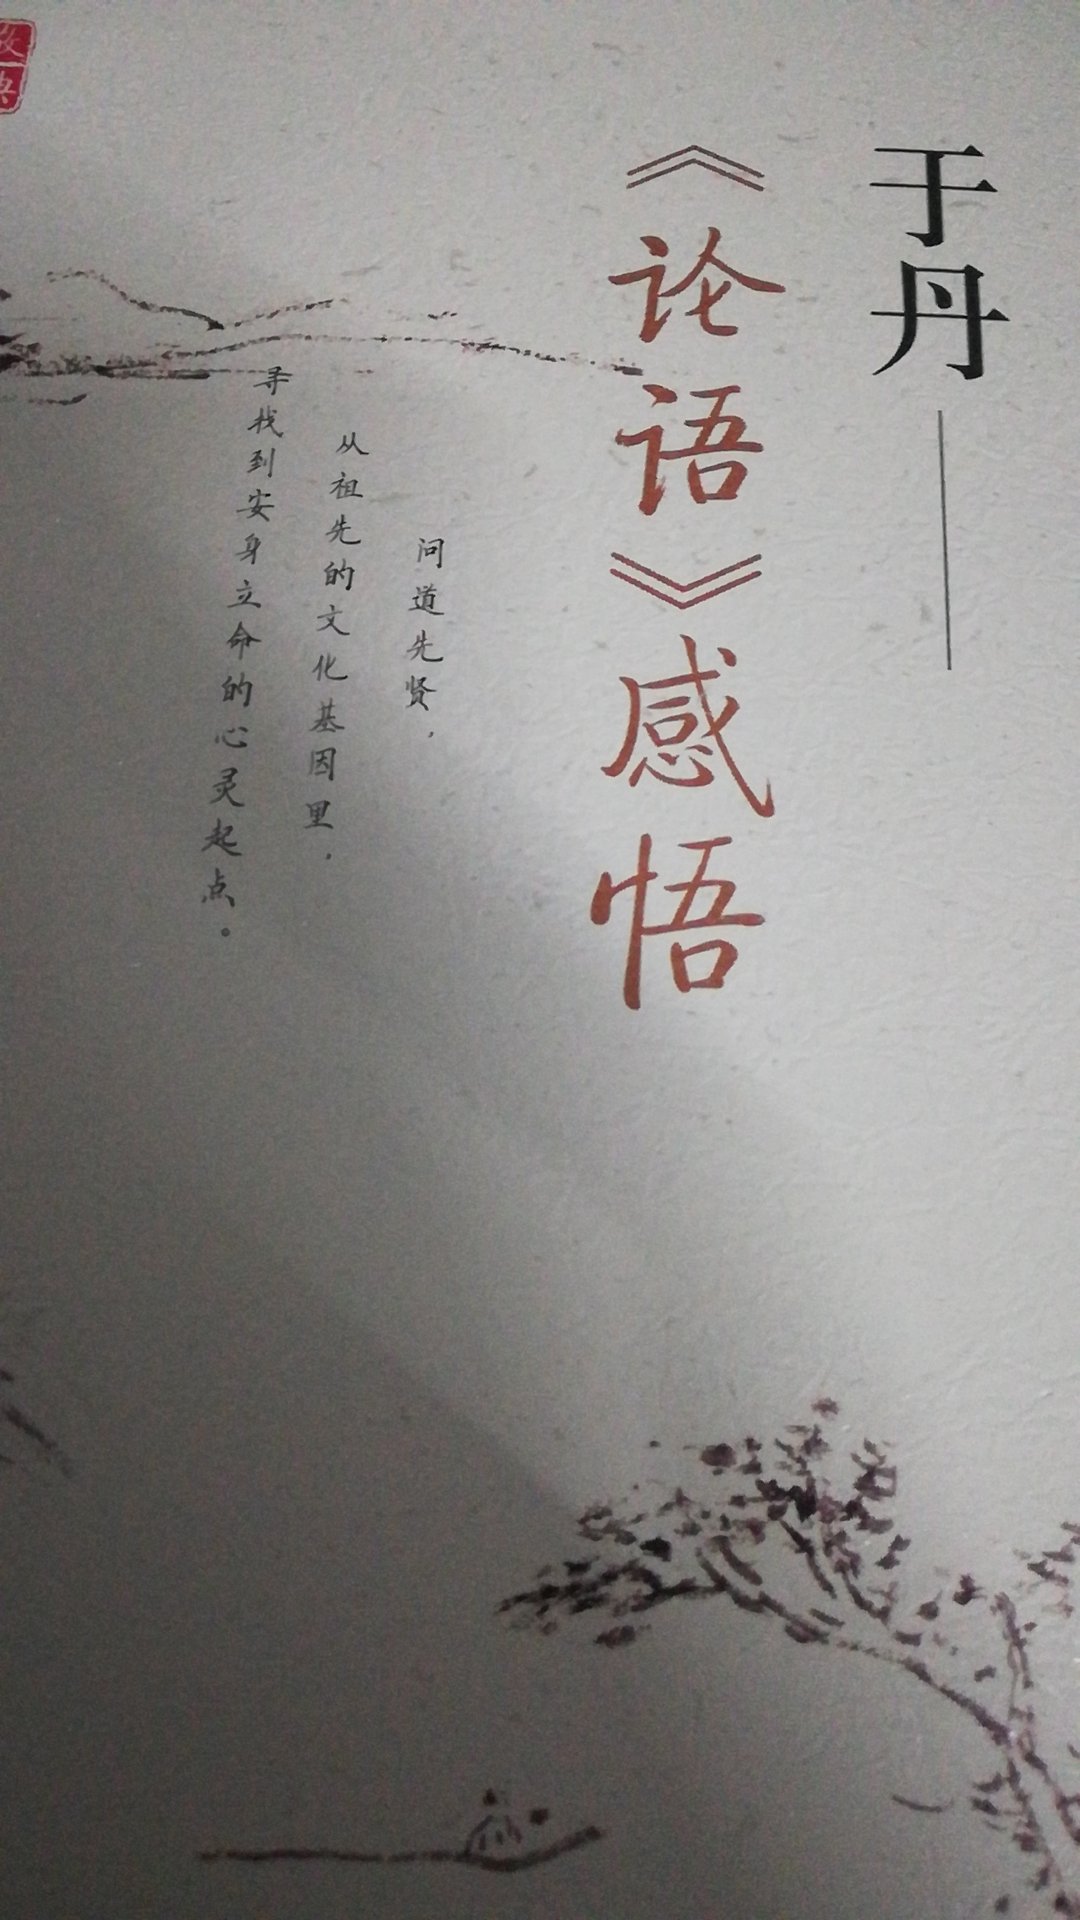 于丹
《论语》感悟
问道先贤，
从祖先的文化基因里，
寻找到安身立命的心灵起点。